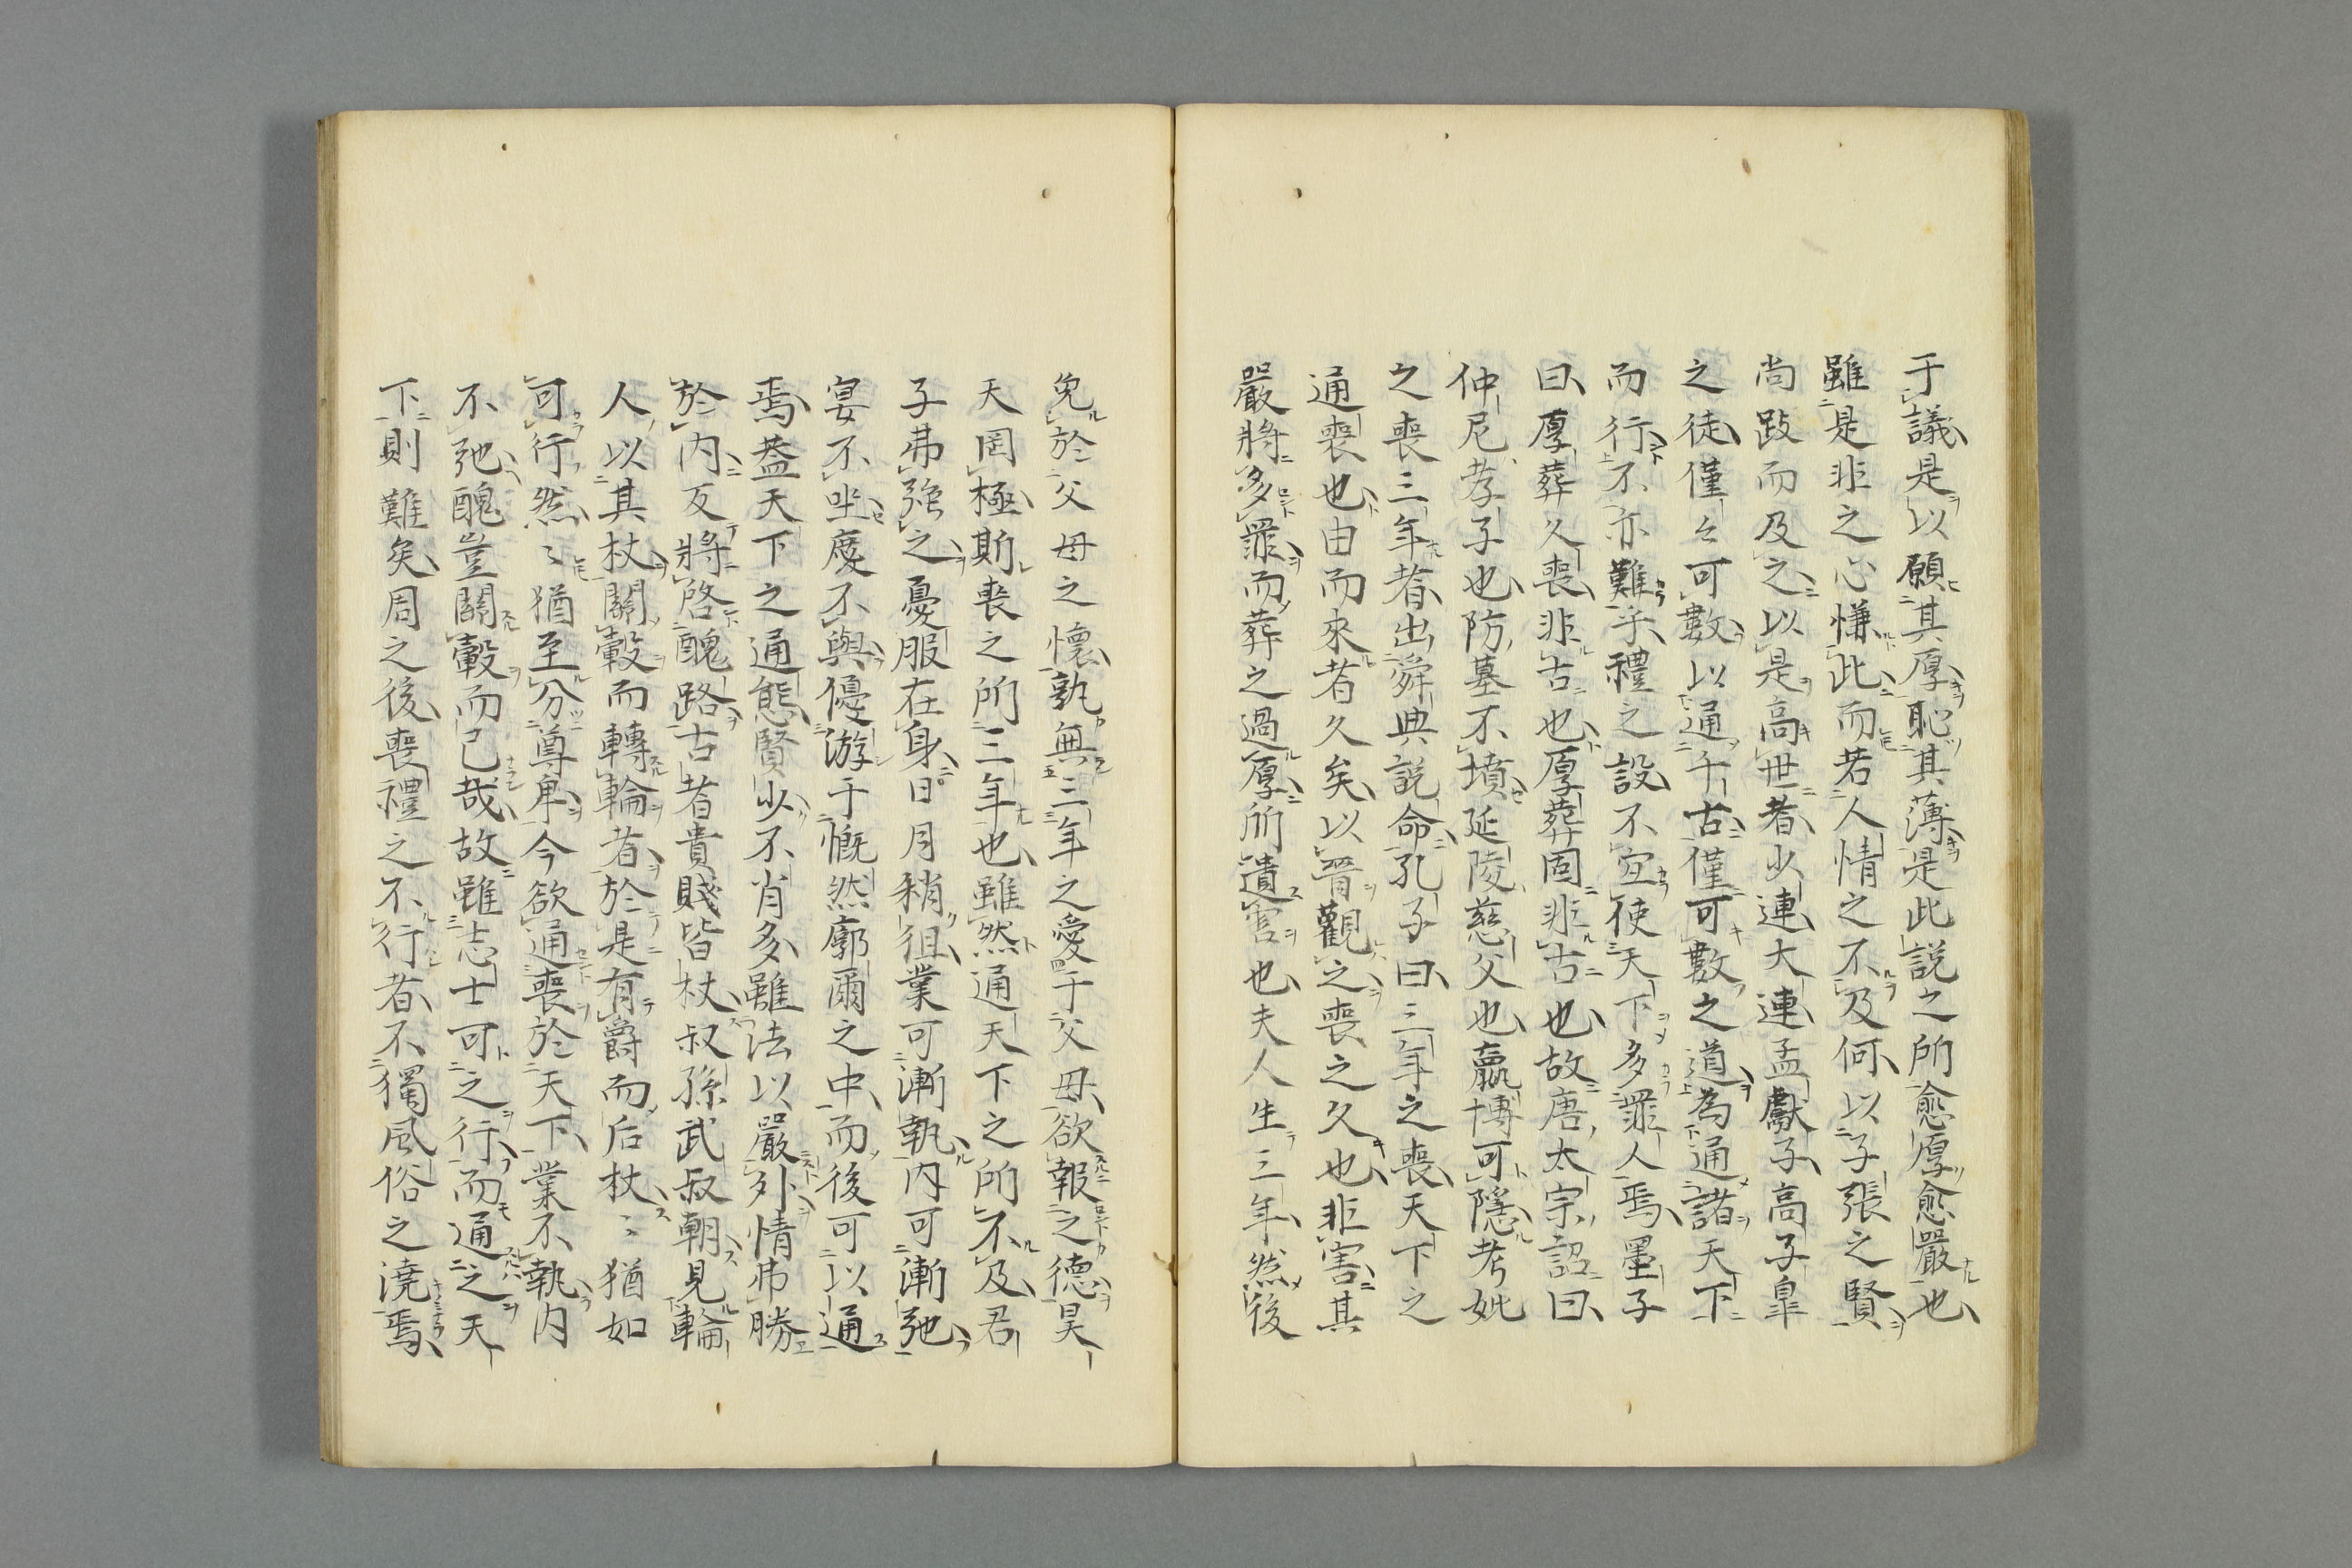 于議是以願其厚恥其薄是此説之所愈厚愈嚴也
雖是非之心慊此而若人情之不及何以子張之賢
尚跂而及之以是高世者少連大連孟獻子高子皐
之徒僅々可數以通千古僅可數之道為通諸天下
而行不亦難乎禮之設不宜使天下多罪人焉墨子
曰厚葬久喪非古也厚葬固非古也故唐太宗詔曰
仲尼孝子也防墓不墳延陵慈父也嬴博可隱考妣
之喪三年者出舜典説命孔子曰三年之喪天下之
通喪也由而來者久矣以晋觀之喪之久也非害其
嚴將多罪而葬之過厚所遺害也夫人生三年然後
免於父母之懷孰無三年之愛于父母欲報之德昊
天罔極斯喪之所三年也雖然通天下之所不及君
子弗強之憂服在身日月稍徂業可漸執内可漸弛
宴不坐慶不與優游于慨然廓爾之中而後可以通
焉葢天下之通態賢少不肖多雖法以嚴外情弗勝
於内反將啓醜路古者貴賤皆杖叔孫武叔朝見輪
人以其杖關轂而轉輪者於是有爵而后杖〻猶如
可行然〻猶至分尊卑今欲通喪於天下業不執内
不弛醜豈關轂而已哉故雖志士可之行而通之天
下則難矣周之後喪禮之不行者不獨風俗之澆焉